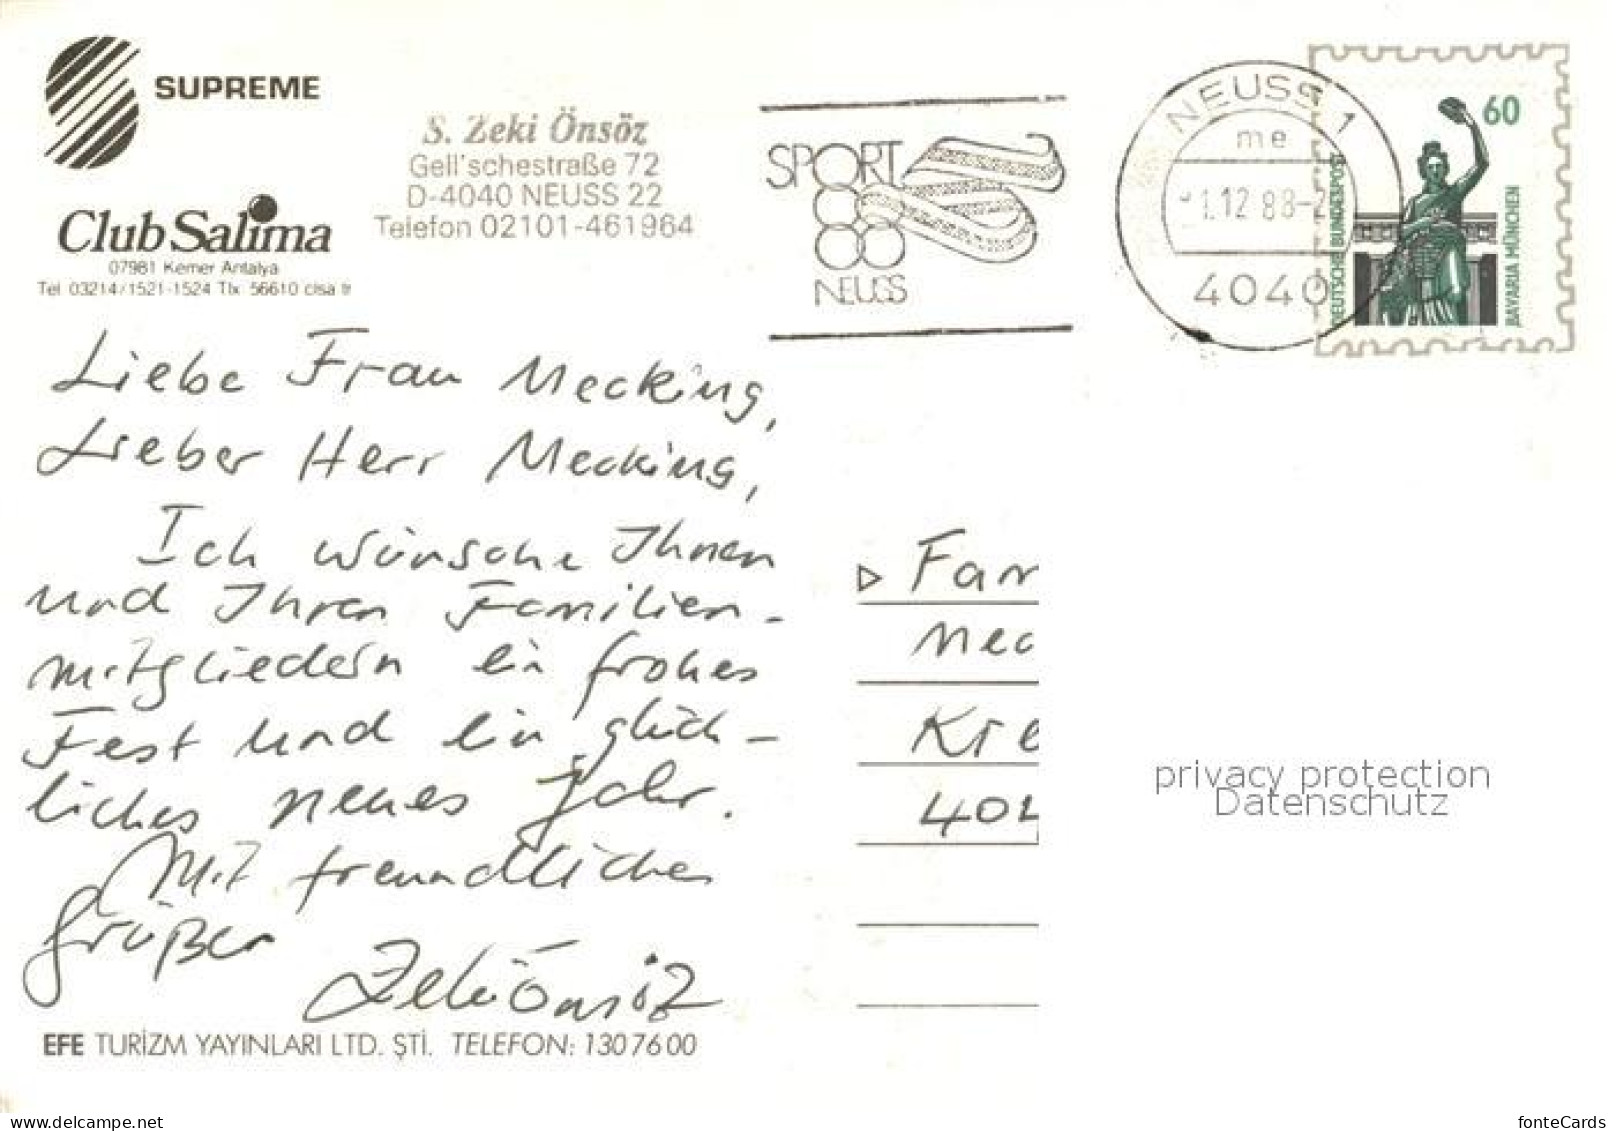 SUPREME
Club Salima
07981 Kemer Antalya
Tel 03214/1521-1524 Tlx 56610 clsa tr
S. Zeki Önsöz
Gell'schestraße 72
D-4040 NEUSS 22
Telefon 02101-461964
SPORT
NEUSS
NEUSS 1
me
1.12 88-2
4040
60
DEUTSCHE BUNDESPOST
BAVARIA MÜNCHEN
Liebe Frau Mecking,
Lieber Herr Mecking,
Ich wünsche Ihnen
und Ihren Familien-
mitgliedern ein frohes
Fest und ein glück-
liches neues Jahr.
Mit freundlichen
Grüßen
Zeki Önsöz
EFE TURİZM YAYINLARI LTD. ŞTİ. TELEFON: 130 76 00
Fam
Mec
Kre
404
privacy protection
Datenschutz
www.delcampe.net
fonteCards